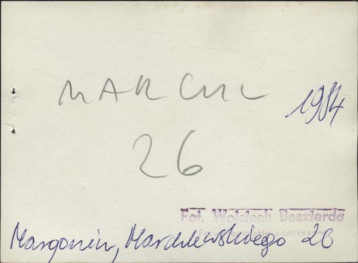 MARCIN
1984
26
Fot. Wojciech Beszterda
Margonin, Marchlewskiego 26